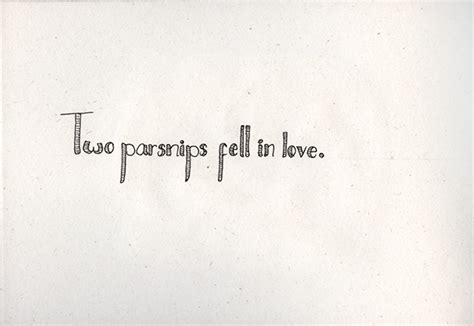 Two parsnips fell in love.